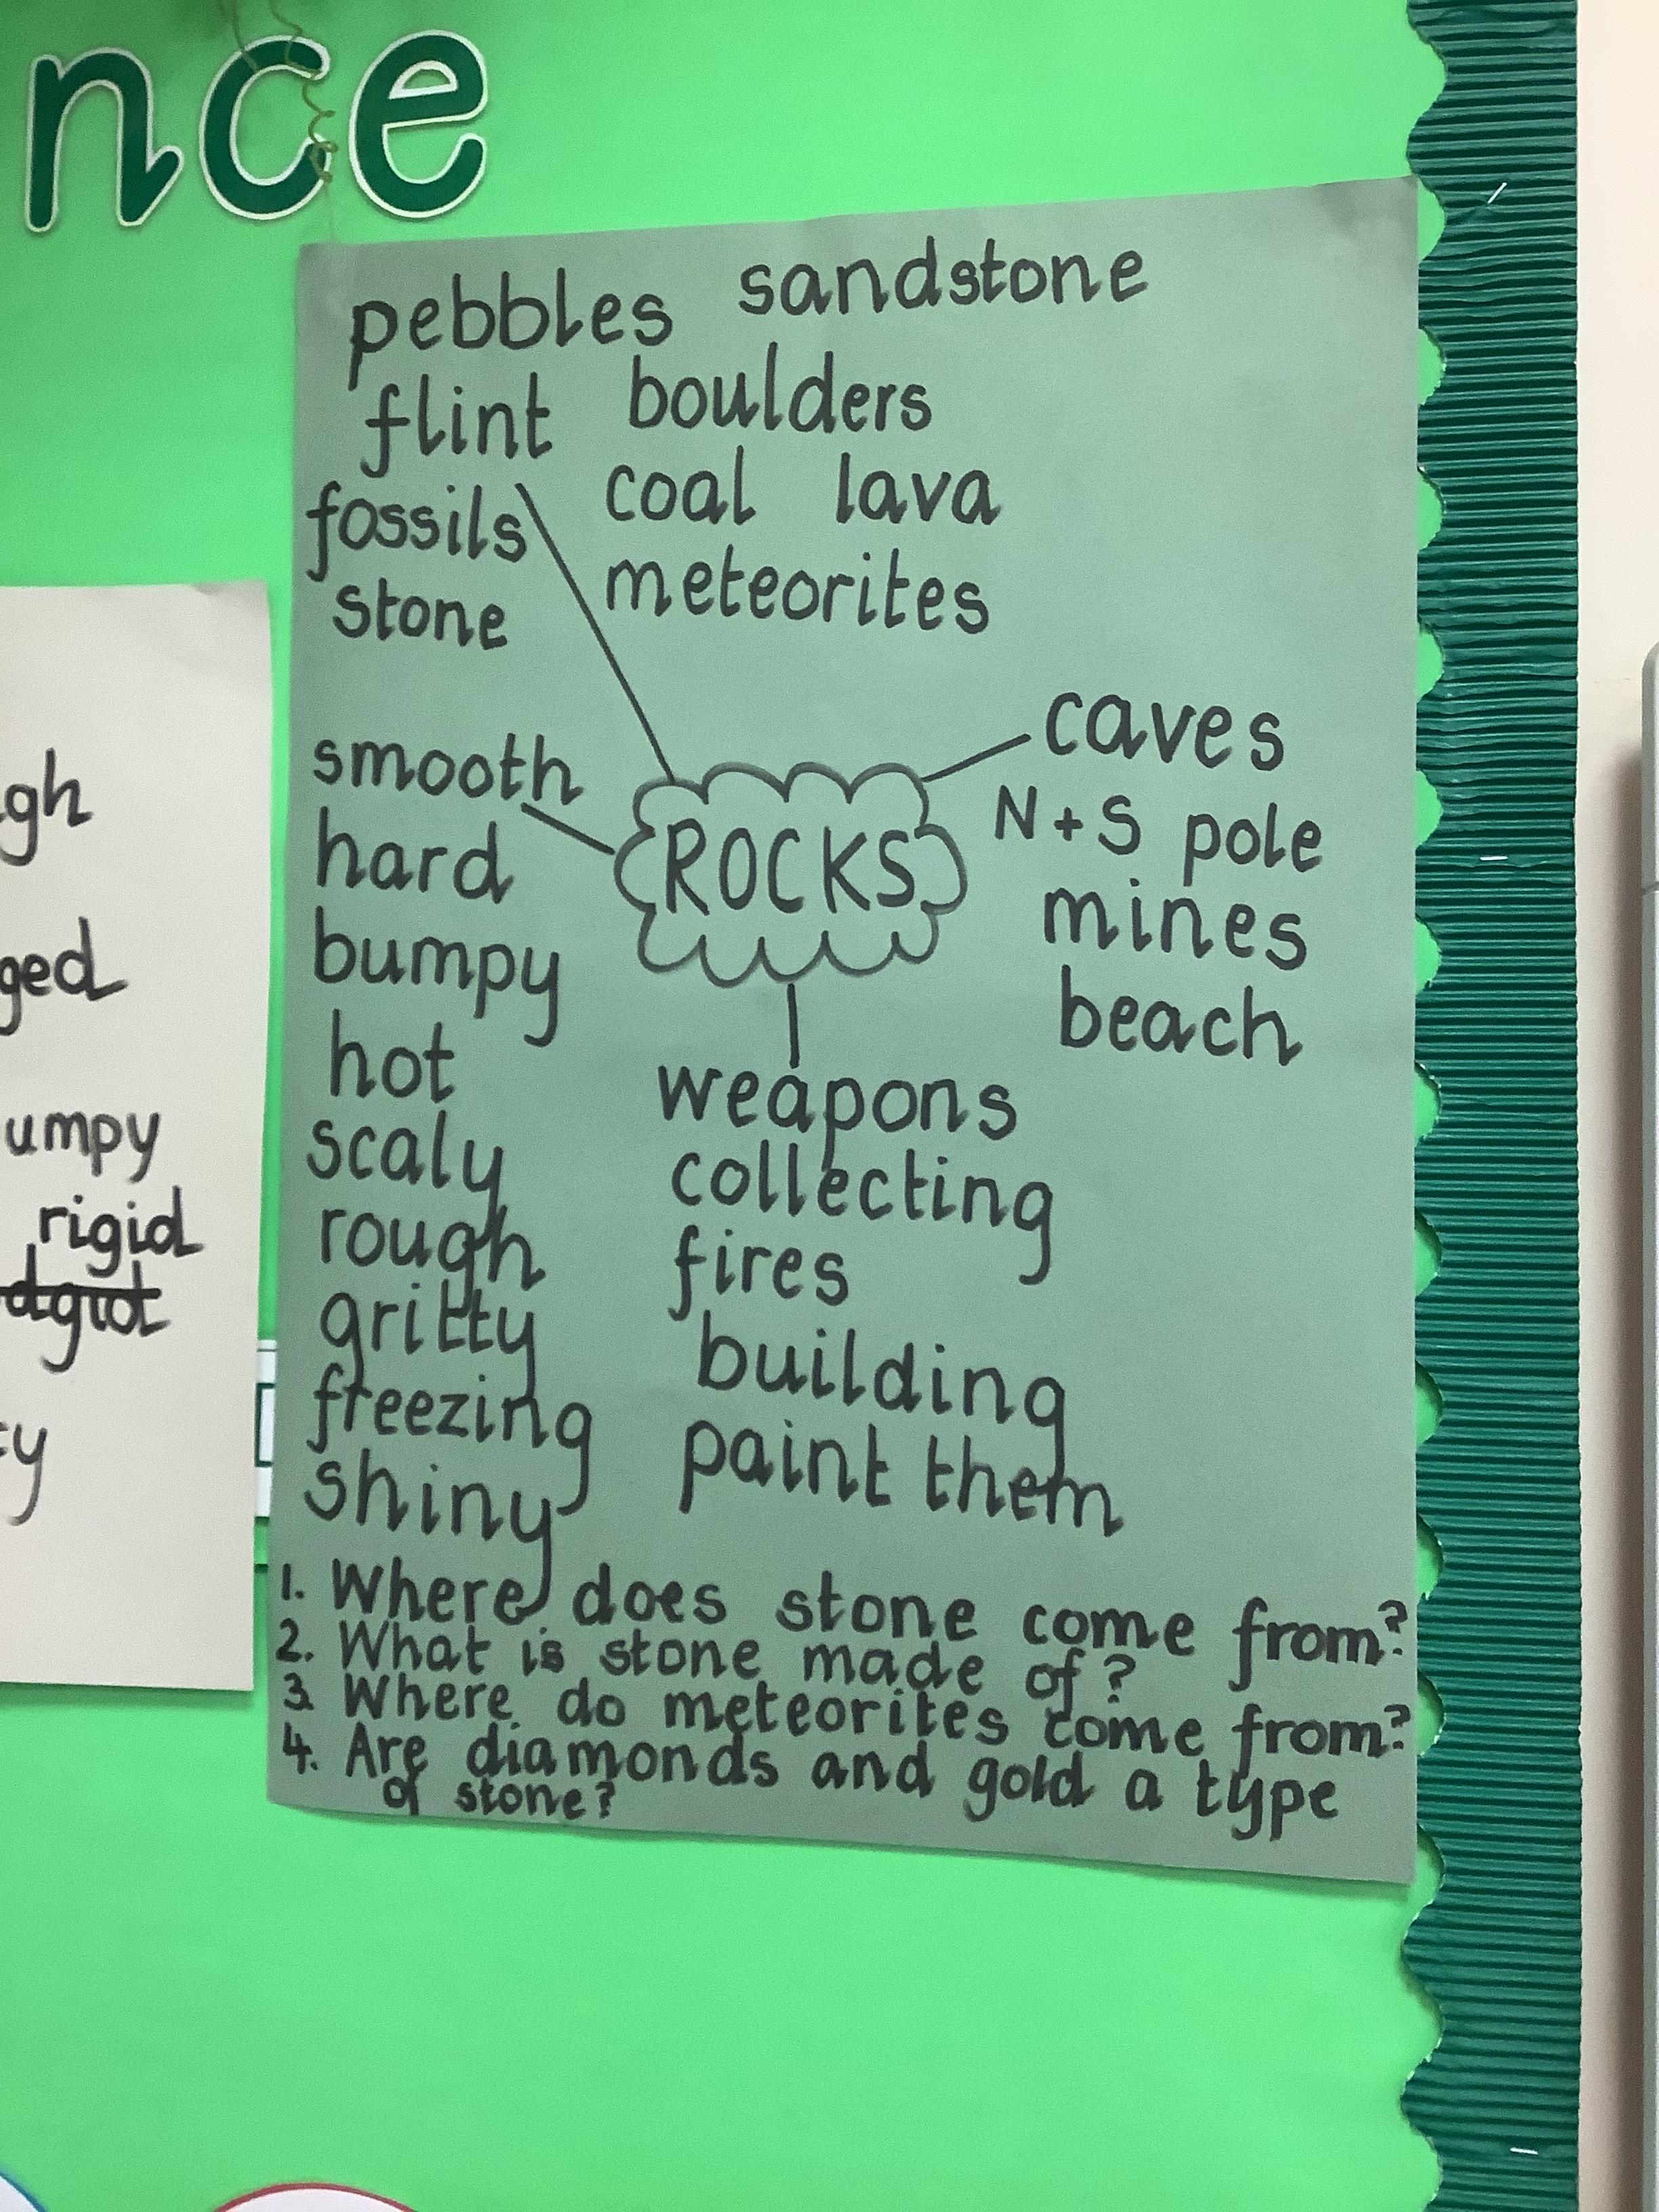 nce
pebbles sandstone
flint boulders
fossils coal lava
stone meteorites
smooth
hard
bumpy
hot
scaly
rough
gritty
freezing
shiny
ROCKS
caves
N+S pole
mines
beach
weapons
collecting
fires
building
paint them
1. Where does stone come from?
2. What is stone made of?
3. Where do meteorites come from?
4. Are diamonds and gold a type
of stone?
gh
ged
umpy
rigid